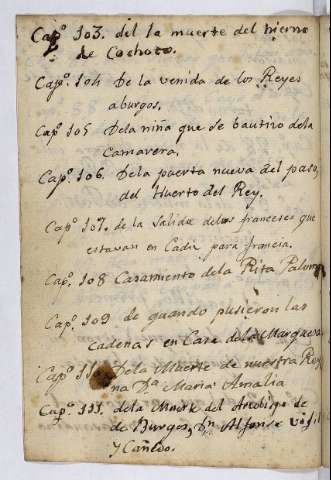 Capº. 103. del la muerte del hierno
de Cochoto.
Capº. 104 De la venida de los Reyes
aburgos,
Capº 105 Dela niña que se bautizo dela
Camarera,
Capº. 106. Dela puerta nueva del paso,
del Huerto del Rey.
Capº. 107. de la Salida delos franceses que
estavan en Cadiz para francia.
Capº. 108 Casamiento dela Rita Paloma
Capº. 109 de quando pusieron las
cadenas en Casa dela Marquesa
Capº. 11 Dela Muerte de nuestra Rey
na Dª Maria Amalia
Capº. 111. dela Muerte del Arzobispo de
de Burgos, Dn Alfonso
Y Cañedo.